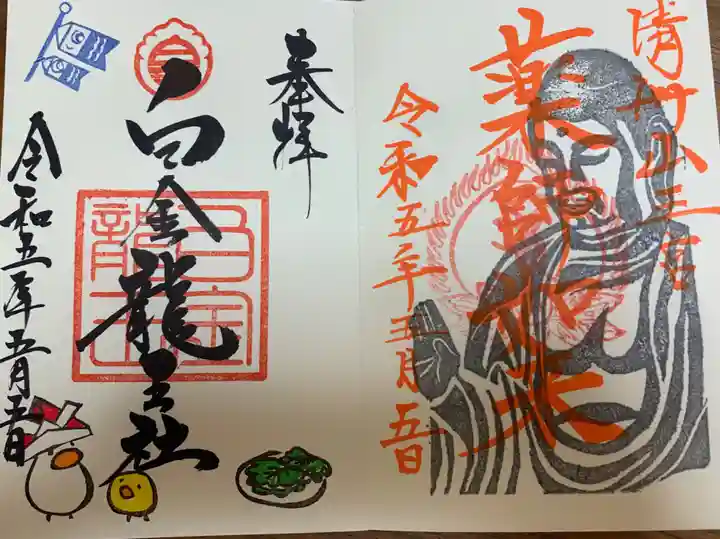 清州山王宮
薬師如来
令和五年五月五日
奉拝
白金龍王社
令和五年五月五日